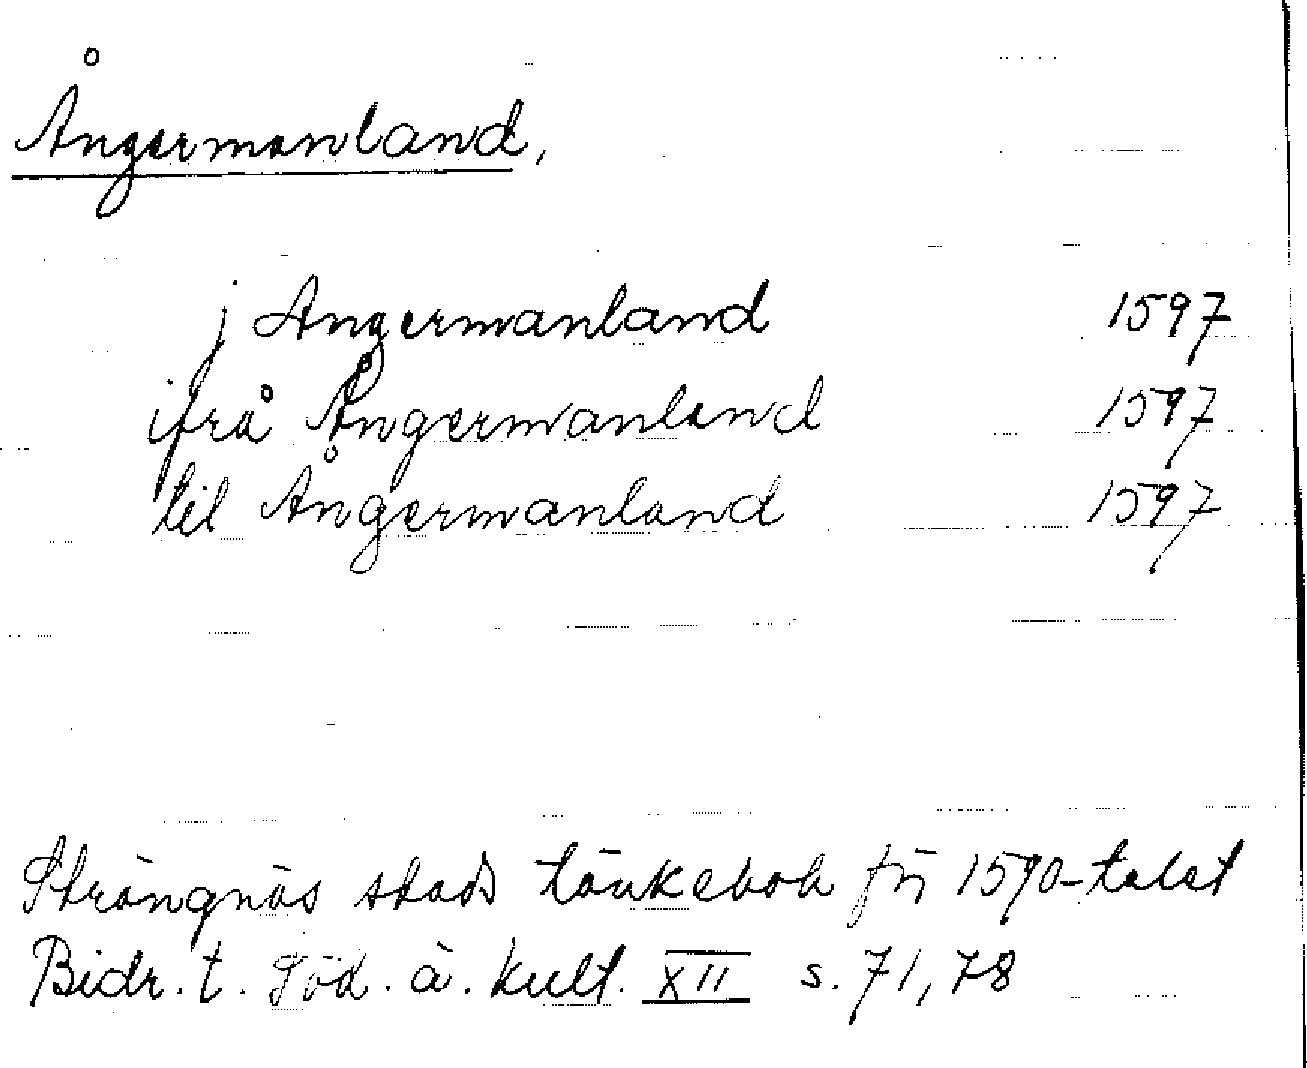 Ångermanland,
j Angermanland 1597
ifrå Ångermanland 1597
til Ångermanland 1597
Strängnäs stads tänkebok för 1590-talet
Bidr. t. Söd. ä. kult. XII s. 71, 78